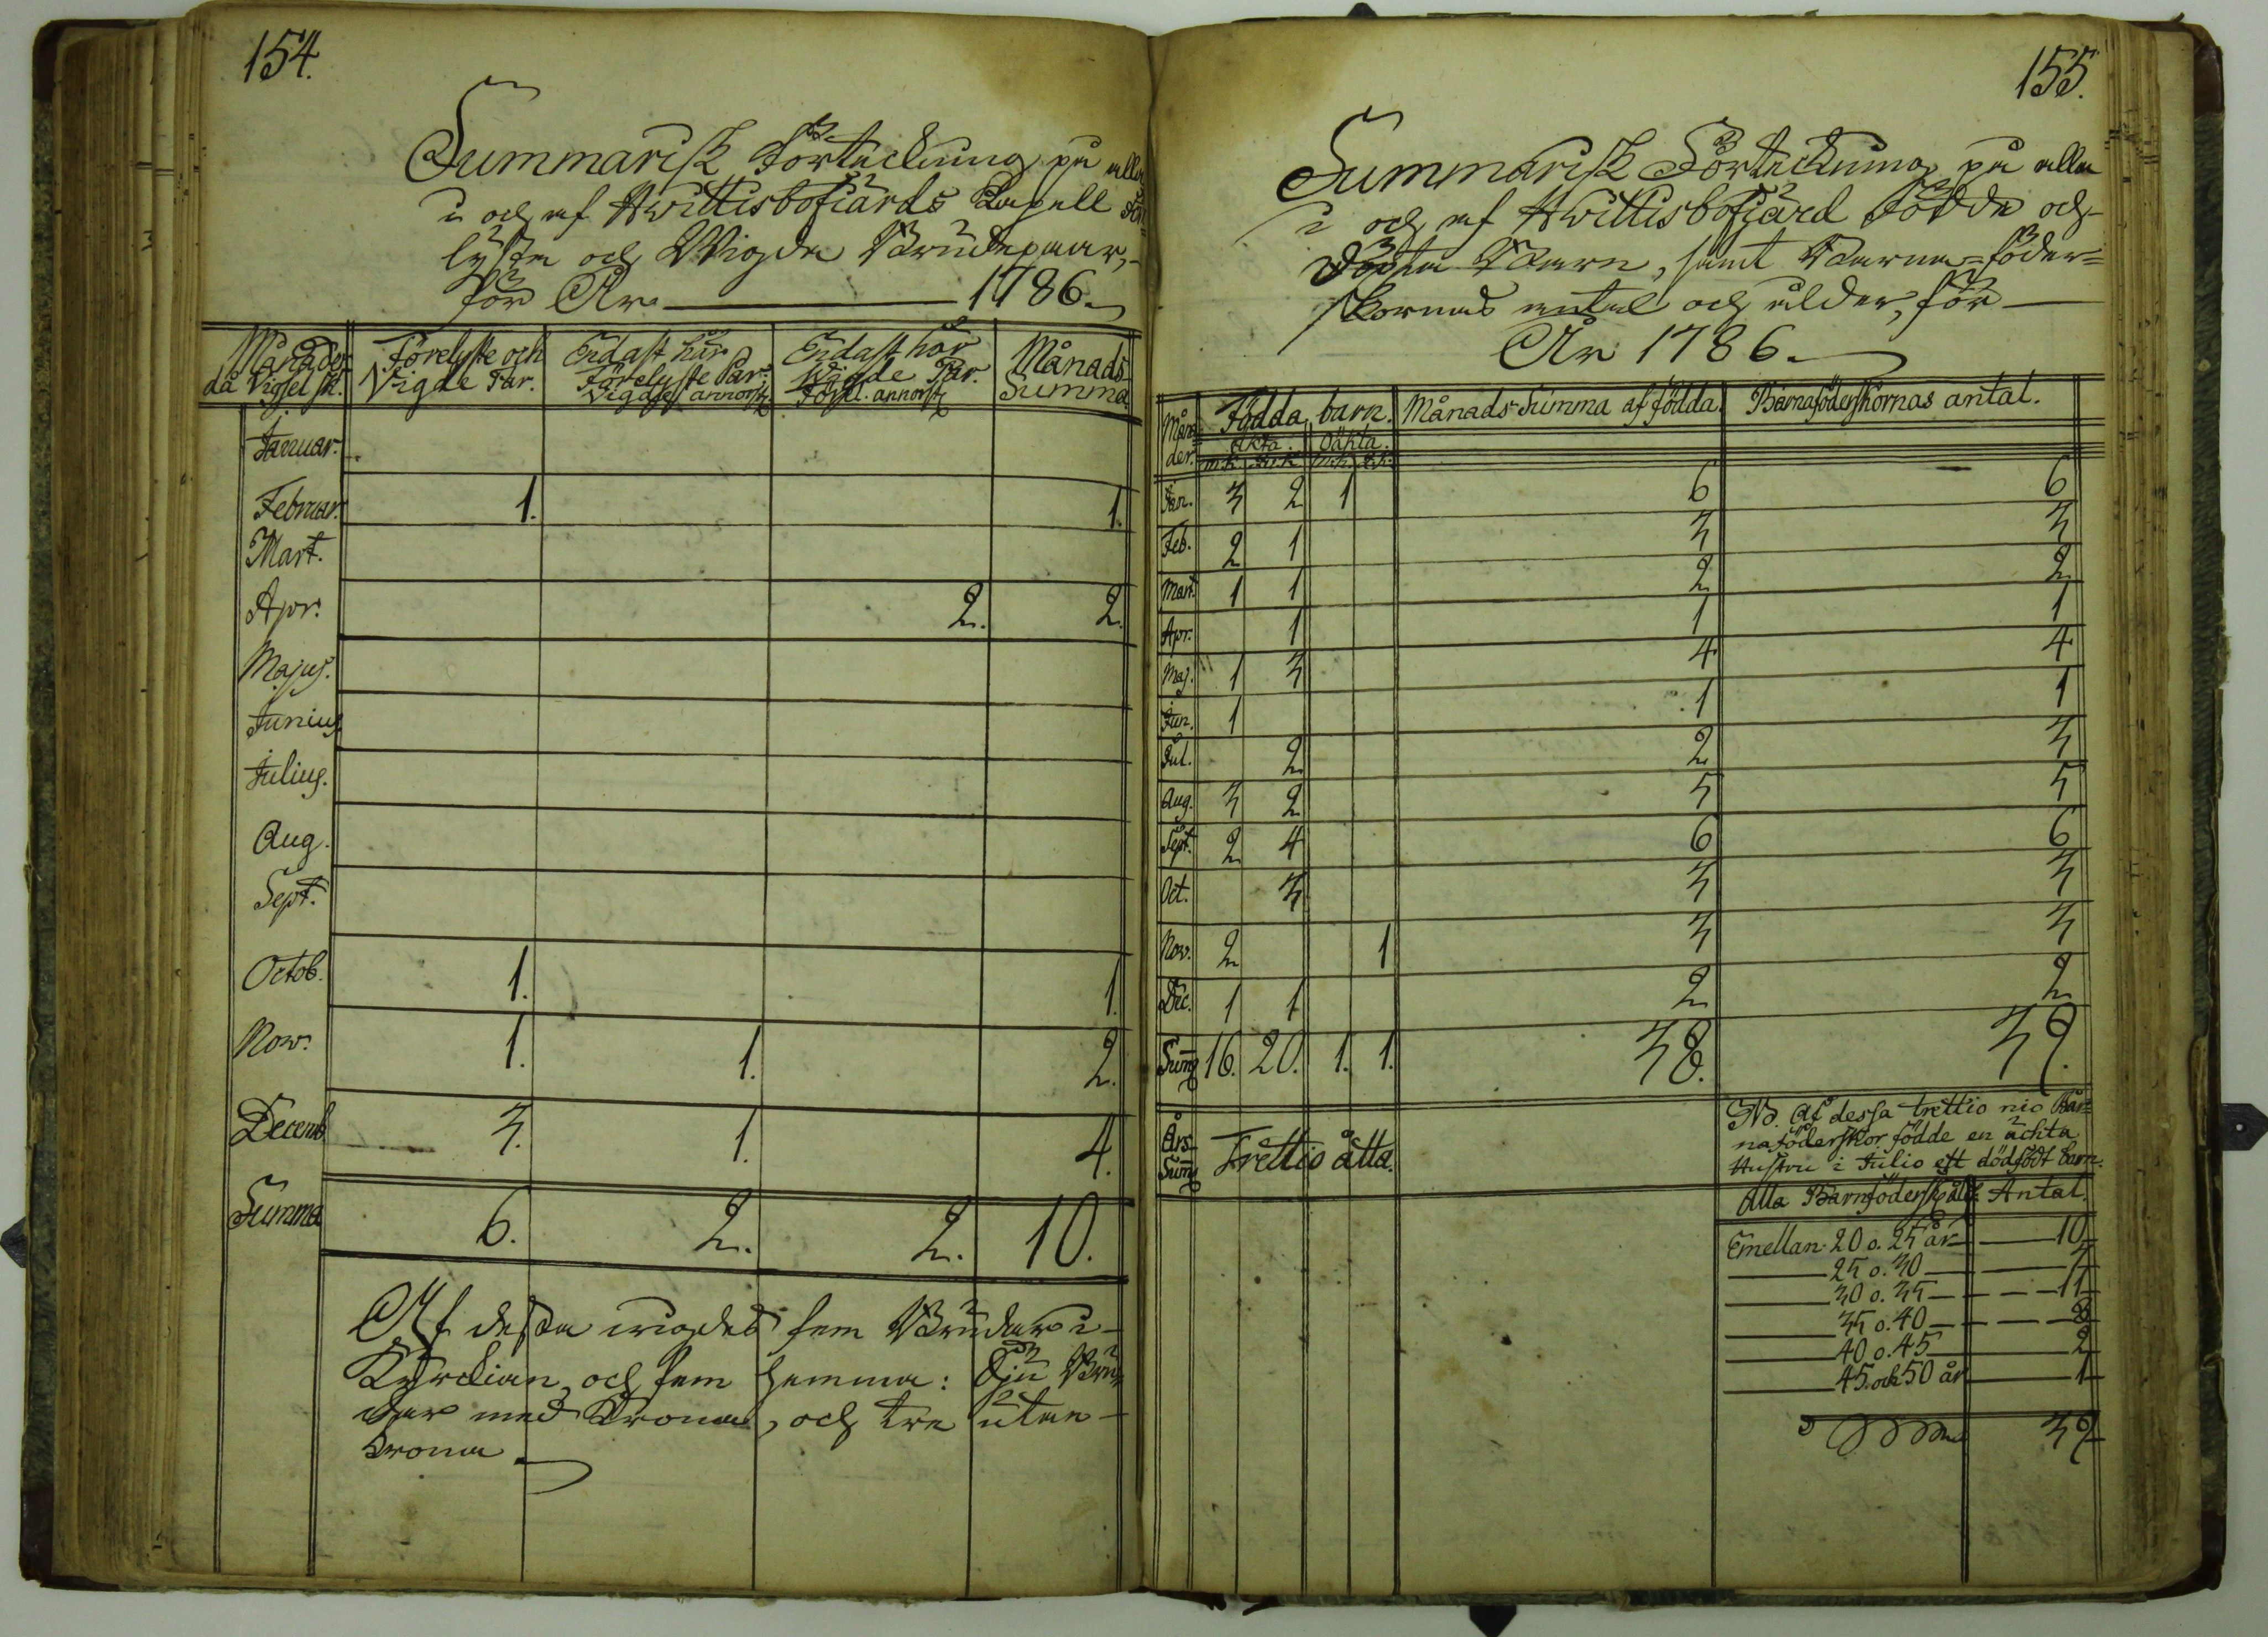 154.
Summarisk Förteckning på alla
i och af Hwittisbofiärds Capell För=
lyste och Wigda Brudepaar,
för År 1786.
Månader då Vigsel sk. | Förelyste och Vigde Par. | Endast här Förelyste Par. Vigdes annorst. | Endast här Wigde Par. Förel. annorst. | Månads Summa
Januar.
Februar. 1. 1.
Mart.
Apr. 2. 2.
Majus.
Junius.
Julius.
Aug.
Sept.
Octob. 1. 1.
Now. 1. 1. 2.
Decemb. 3. 1. 4.
Summa 6. 2. 2. 10.
Af dessa wigdes fem Brudar i
Kyrckian, och fem hemma: Sju Bru=
dar med Krona, och tre utan
Krona
155.
Summarisk Förteckning på alla
i och af Hwittisbofjärd Födde och
Döpta Barn, samt Barna=föder=
skornas antal och ålder, för
År 1786.
Måna=der. | Födda barn. | Månads Summa af födda. | Barnaföderskornas antal.
Äkta. Oäkta.
m.k. qv.k. m.k. q.k.
Jan. 3 2 1 6 6
Feb. 2 1 3 3
Mart. 1 1 2 2
Apr. 1 1 1
Maj. 1 3 4 4
Jun. 1 1 1
Jul. 2 2 3
Aug. 3 2 5 5
Sept. 2 4 6 6
Oct. 3 3 3
Now. 2 1 3 3
Dec. 1 1 2 2
Sum̄ 16. 20. 1. 1. 38. 39.
Års Sum̄ Trettio åtta.
NB. Af dessa trettio nio Bar=
naföderskor födde en ächta
Hustru i Julio ett dödfödt barn.
Alla Barnfödersk. åld. Antal.
Emellan 20 o. 25 år 10
25 o. 30 7
30 o. 35 11
35 o. 40 8
40 o. 45 2
45 och 50 år 1
39